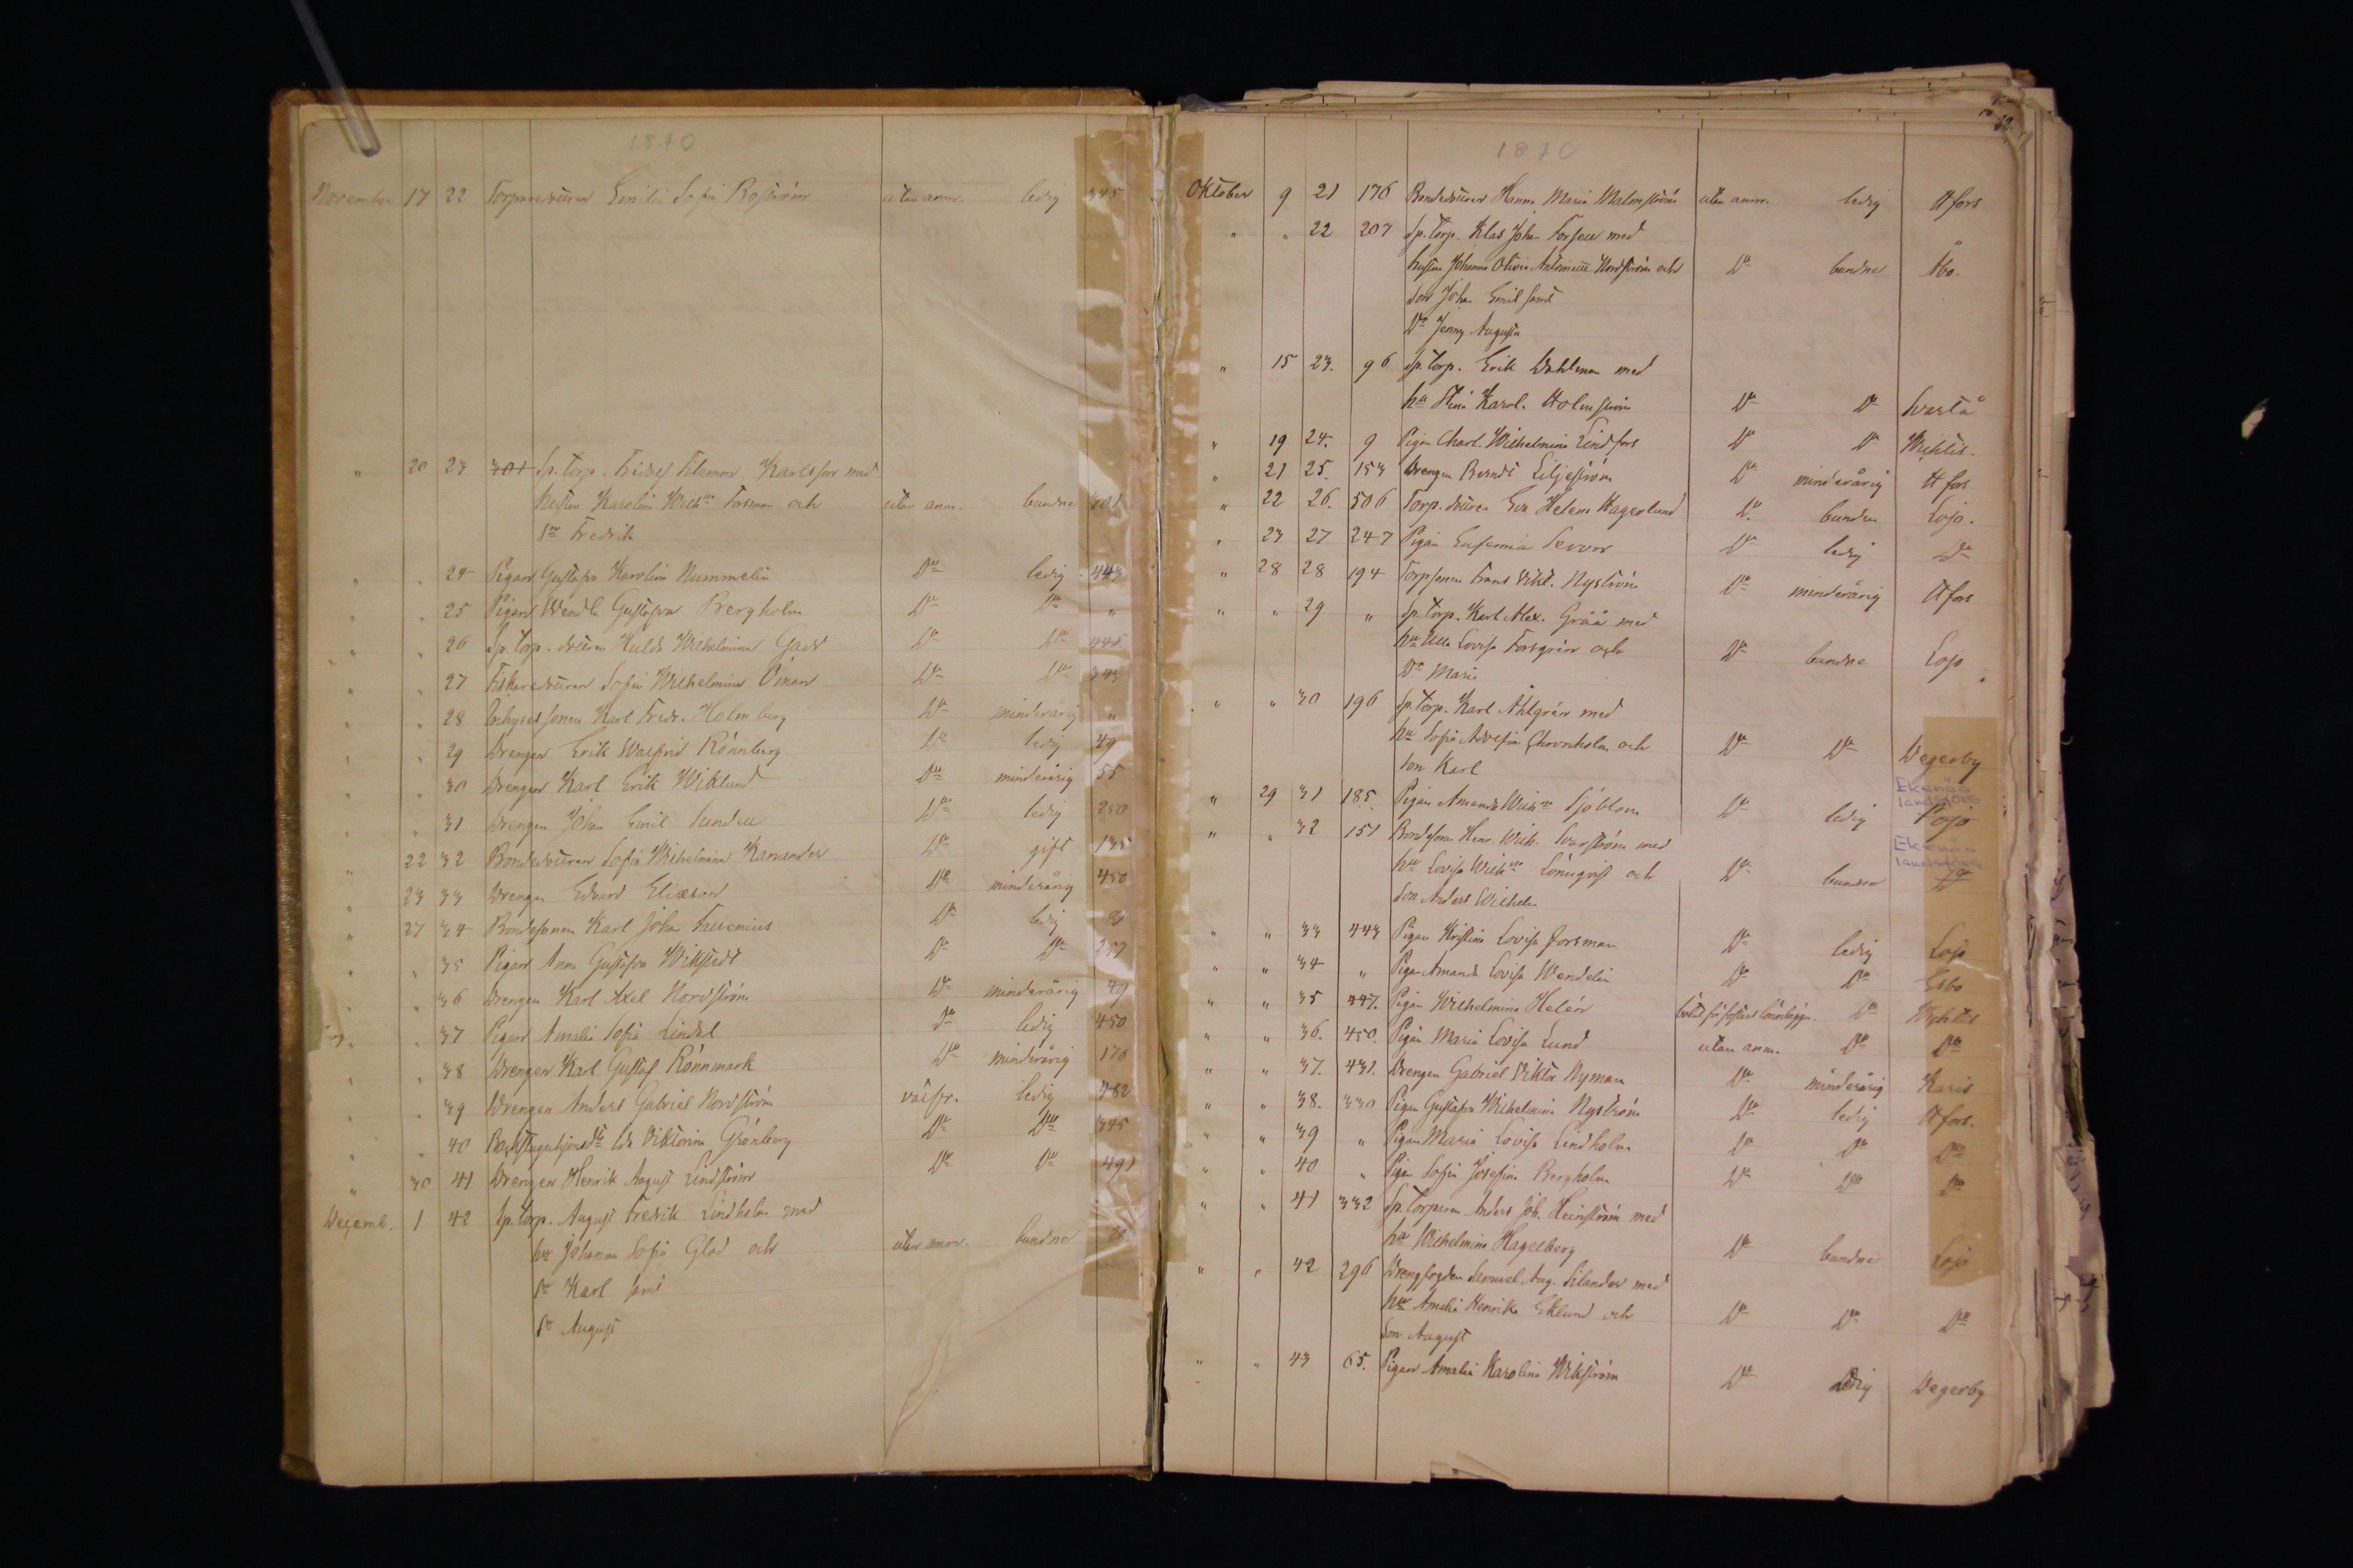 1870
November 17 22 Torparedottren Emili Sofia Boström utan anm. ledig 345
" 20 23 301 Sp. torp. Fridolf Filemon Karlsson med
hustru Karolina Wilh:na Forsman och utan anm. bundne 301
Sn Fredrik
" " 24 Pigan Gustafva Karolina Nummelin Do ledig 443
" " 25 Pigan Wendla Gustafva Bergholm Do Do "
" " 26 Sp. torp. dottren Hulda Wilhelmina Gadd Do Do 445
" " 27 Fiskaredottren Sofia Wilhelmina Öman Do Do 345
" " 28 Inhysessonen Karl Fredr. Holmberg Do minderårig "
" " 29 Drengen Erik Walfrid Rönnberg Do ledig 49
" " 30 Drengen Karl Erik Wiklund Do minderårig 55
" " 31 Drengen Johan Emil Sundell Do ledig 250
" 22 32 Bondedottren Sofia Wilhelmina Kamander Do gift 135
" 23 33 Drengen Edvard Eliasson Do minderårig 450
" 27 34 Bondesonen Karl Johan Do ledig
" " 35 Pigan Anna Gustafva Wikstedt Do Do 257
" " 36 Drengen Karl Axel Nordström Do minderårig 49
" " 37 Pigan Amalia Sofia Lindel Do ledig 450
" " 38 Drengen Karl Gustaf Rönnmark Do minderårig 170
" " 39 Drengen Anders Gabriel Nordström välfr. ledig 482
" " 40 Ida Viktorina Grönberg Do Do 345
" 30 41 Drengen Henrik August Lindström Do Do 491
Decemb. 1 42 Sp. torp. August Fredrik Lindholm med
hu Johanna Sofia Glad och utan anm. bundne
Sn Karl samt
Sn August
1870
Oktober 9 21 176 Bondedottren Hanna Maria Malmström utan anm. ledig Hfors
" " 22 207 Sp. torp. Klas Johan Forsell med
hustru Johanna Olivia Antoinette Nordström och Do bundne Åbo.
Son Johan Emil samt
Dr Jenny Augusta
" 15 23. 96 Sp. torp. Erik Dahlman med
hu Stina Karol. Holmström Do Do Svartå
" 19 24. 9 Pigan Charl. Wilhelmina Lindfors Do Do Wichtis.
" 21 25. 153 Drengen Berndt Liljeström Do minderårig Hfors
" 22 26. 506 Torp. dottren Eva Helena Hagerlund Do bunden Lojo.
" 23 27 247 Pigan Eufemia Do ledig Do
" 28 28 194 Torpsonen Frans Vikt. Nyström Do minderårig Hfors
" " 29 " Sp. torp. Karl Alex. Gråå med
hu Ulla Lovisa Forsgrén och Do bundne Lojo
Dr Maria
" " 30 196 Sp. torp. Karl Ahlgrén med
hu Sofia Adolfina och Do Do Degerby
son Karl
Ekenäs
landsförs
" 29 31 185. Pigan Amanda Wilh:na Sjöblom Do ledig Pojo
" " 32 151 Bondesonen Henr. Wilh. Svarström med
Ekenäs
landsförs
hu Lovisa Wilh:na Lönnqvist och Do bundne Do
Son Anders Wilhelm
" " 33 443 Pigan Kristina Lovisa Forsman Do ledig Lojo
" " 34 " Pigan Amanda Lovisa Wendelin Do Do Esbo
" " 35 447. Pigan Wilhelmina Helén Do Wichtis
" " 36. 450. Pigan Maria Lovisa Lund utan anm. Do Do
" " 37. 431. Drengen Gabriel Viktor Nyman Do minderårig Karis
" " 38. 330 Pigan Gustafva Wilhelmina Nyström Do ledig Hfors.
" " 39 " Pigan Maria Lovisa Lindholm Do Do Do
" " 40 " Pigan Sofia Josefina Bergholm Do Do Do
" " 41 332 Sp. torparen Anders Joh. Heinström med
hu Wilhelmina Hagelberg Do bundne Lojo
" " 42 296 Drengfogden Samuel Aug. Silander med
hu Amalia Henrika Eklund och Do Do Do
Son August
" " 43 65. Pigan Amalia Karolina Wikström Do ledig Degerby